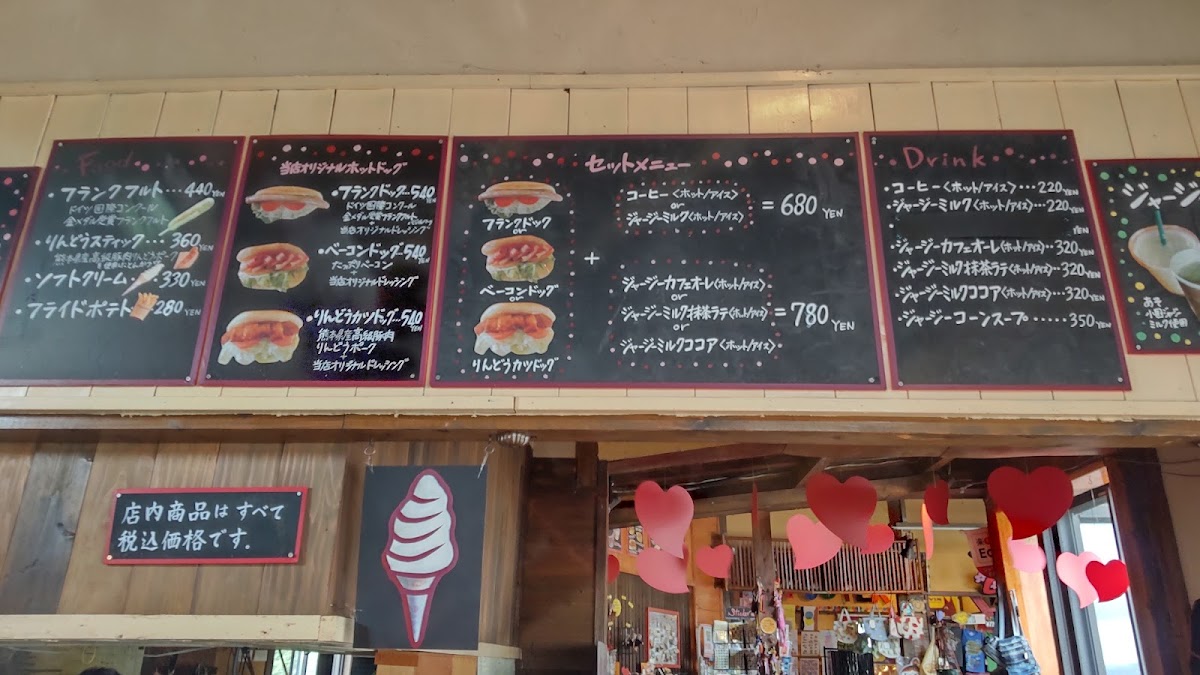 Food
フランクフルト…440YEN
ドイツ国際コンクール
金メダル受賞フランクフルト
りんどうスティック…360YEN
熊本県産高級豚肉りんどうポーク
ソフトクリーム…330YEN
フライドポテト…280YEN
当店オリジナルホットドッグ
フランクドッグ…540YEN
ドイツ国際コンクール
金メダル受賞フランクフルト
当店オリジナルドレッシング
ベーコンドッグ…540YEN
たっぷりベーコン
+
当店オリジナルドレッシング
りんどうカツドッグ…540YEN
熊本県産高級豚肉
りんどうポーク
+
当店オリジナルドレッシング
セットメニュー
フランクドッグ
or
ベーコンドッグ
or
りんどうカツドッグ
+
コーヒー〈ホット/アイス〉
or
ジャージーミルク〈ホット/アイス〉
= 680 YEN
ジャージーカフェオーレ〈ホット/アイス〉
or
ジャージーミルク抹茶ラテ〈ホット/アイス〉
or
ジャージーミルクココア〈ホット/アイス〉
= 780 YEN
Drink
コーヒー〈ホット/アイス〉…220YEN
ジャージーミルク〈ホット/アイス〉…220YEN
YEN
ジャージーカフェオーレ〈ホット/アイス〉…320YEN
ジャージーミルク抹茶ラテ〈ホット/アイス〉…320YEN
ジャージーミルクココア〈ホット/アイス〉…320YEN
ジャージーコーンスープ……350YEN
ジャージ
あそ
小国ジャージー
ミルク使用
店内商品はすべて
税込価格です。